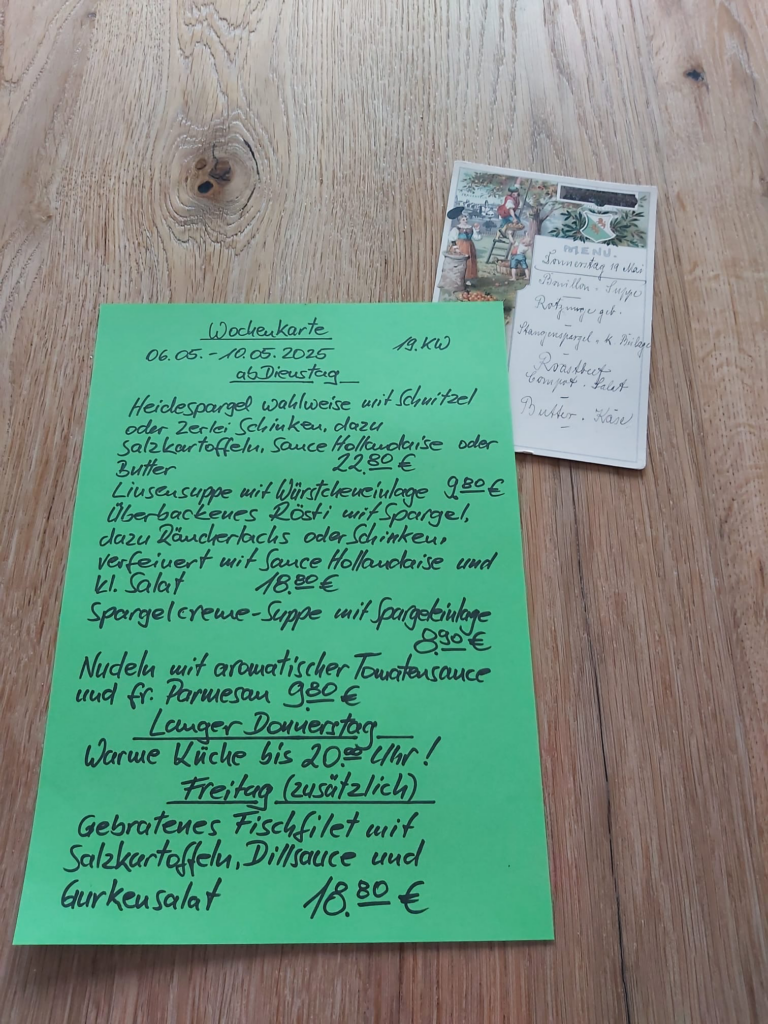 Wochenkarte
06.05. - 10.05.2025 19. KW
ab Dienstag
Heidespargel wahlweise mit Schnitzel
oder 2erlei Schinken, dazu
Salzkartoffeln, Sauce Hollandaise oder
Butter 22.80 €
Linsensuppe mit Würstcheneinlage 9.80 €
Überbackenes Rösti mit Spargel,
dazu Räucherlachs oder Schinken,
verfeinert mit Sauce Hollandaise und
kl. Salat 18.80 €
Spargelcreme-Suppe mit Spargeleinlage
8.90 €
Nudeln mit aromatischer Tomatensauce
und fr. Parmesan 9.80 €
Langer Donnerstag
Warme Küche bis 20.00 Uhr!
Freitag (zusätzlich)
Gebratenes Fischfilet mit
Salzkartoffeln, Dillsauce und
Gurkensalat 18.80 €
MENU.
Donnerstag 19 Mai
Bouillon-Suppe
Rotzunge geb.
Stangenspargel u. k. Beilage
Roastbeef
Compot. Salat
Butter. Käse